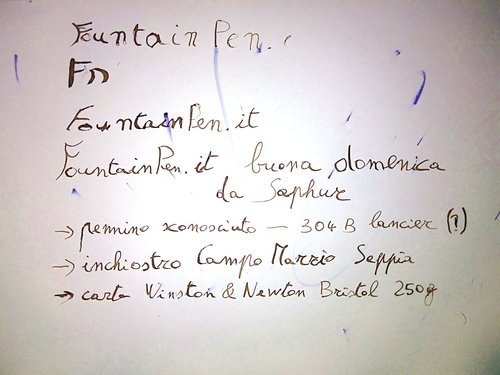 Fountain Pen.
Fn
FountainPen.it
FountainPen.it buona domenica
da Sephur
→ pennino sconosciuto — 304 B lancier (?)
→ inchiostro Campo Marzio Seppia
→ carta Winston & Newton Bristol 250g